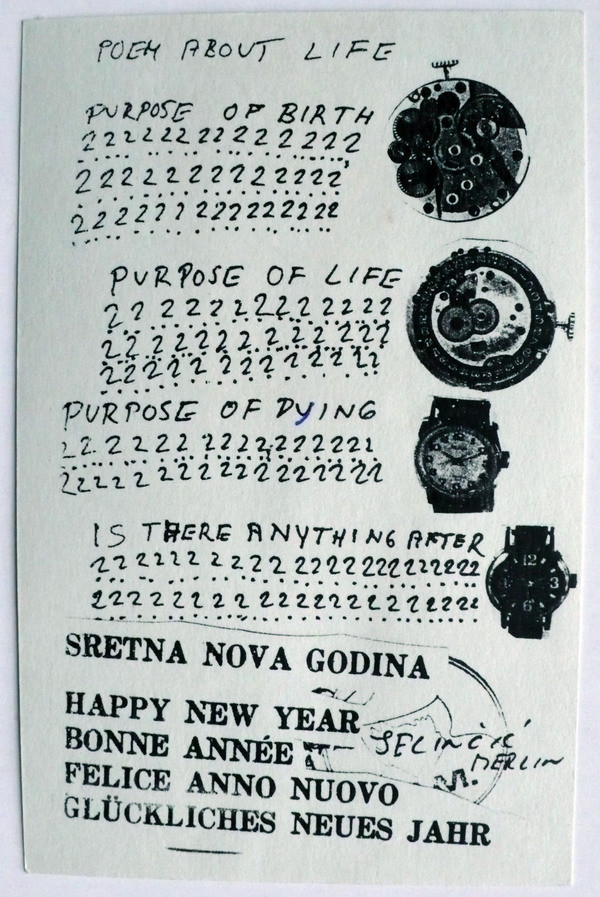 POEM ABOUT LIFE
PURPOSE OF BIRTH
? ? ? ? ? ? ? ? ? ? ? ? ? ?
? ? ? ? ? ? ? ? ? ? ? ? ? ?
? ? ? ? ? ? ? ? ? ? ? ? ? ?
PURPOSE OF LIFE
? ? ? ? ? ? ? ? ? ? ? ? ?
? ? ? ? ? ? ? ? ? ? ? ? ? ?
? ? ? ? ? ? ? ? ? ? ? ? ?
PURPOSE OF DYING
? ? ? ? ? ? ? ? ? ? ? ? ? ?
? ? ? ? ? ? ? ? ? ? ? ? ? ? ?
IS THERE ANYTHING AFTER
? ? ? ? ? ? ? ? ? ? ? ? ? ? ? ? ? ? ? ? ?
? ? ? ? ? ? ? ? ? ? ? ? ? ? ? ? ? ? ? ?
12
3
6
SRETNA NOVA GODINA
HAPPY NEW YEAR
BONNE ANNÉE
MERLIN
FELICE ANNO NUOVO
GLÜCKLICHES NEUES JAHR